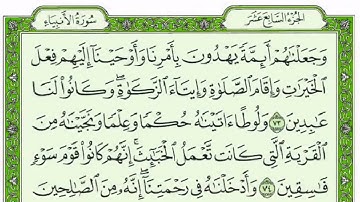 الجزء السابع عشر
سورة الأنبياء
وَجَعَلْنَٰهُمْ أَئِمَّةً يَهْدُونَ بِأَمْرِنَا وَأَوْحَيْنَآ إِلَيْهِمْ فِعْلَ
ٱلْخَيْرَٰتِ وَإِقَامَ ٱلصَّلَوٰةِ وَإِيتَآءَ ٱلزَّكَوٰةِ ۖ وَكَانُوا۟ لَنَا
عَٰبِدِينَ ٧٣ وَلُوطًا ءَاتَيْنَٰهُ حُكْمًا وَعِلْمًا وَنَجَّيْنَٰهُ مِنَ
ٱلْقَرْيَةِ ٱلَّتِى كَانَت تَّعْمَلُ ٱلْخَبَٰٓئِثَ ۗ إِنَّهُمْ كَانُوا۟ قَوْمَ سَوْءٍ
فَٰسِقِينَ ٧٤ وَأَدْخَلْنَٰهُ فِى رَحْمَتِنَآ ۖ إِنَّهُۥ مِنَ ٱلصَّٰلِحِينَ